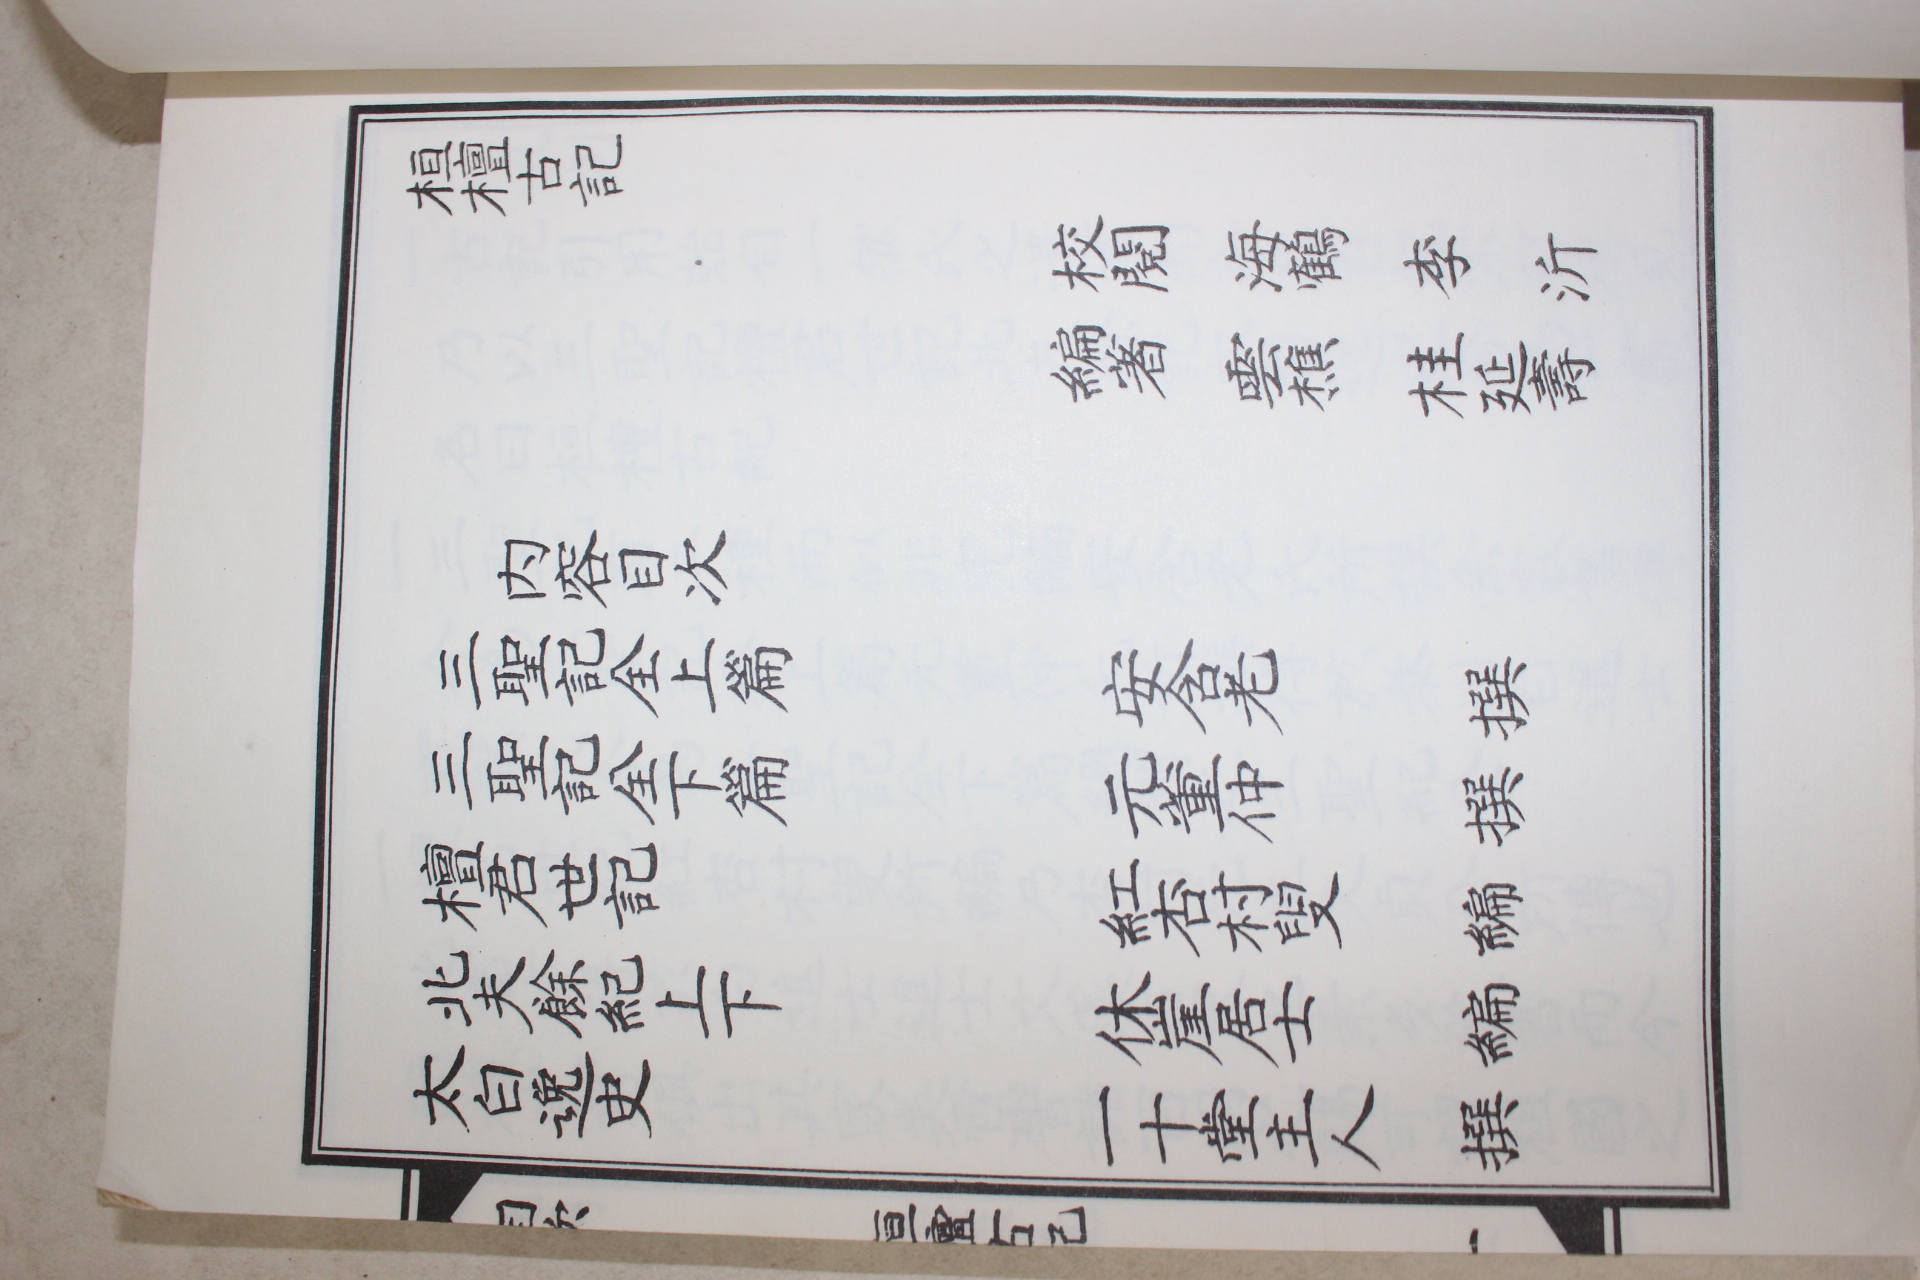 桓檀古記
校閱 海鶴 李沂
編著 雲樵 桂延壽
內容目次
三聖記全上篇 安含老 撰
三聖記全下篇 元董仲 撰
檀君世記 紅杏村叟 編
北夫餘紀上下 休崖居士 編
太白逸史 一十堂主人 撰
目次 桓檀古記